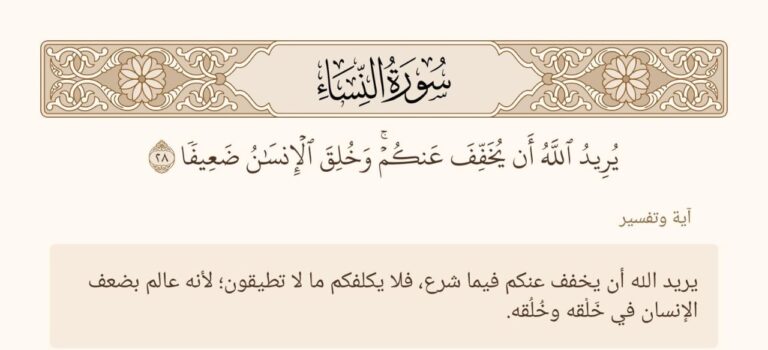 سُورَةُ النِّسَاءِ
يُرِيدُ ٱللَّهُ أَن يُخَفِّفَ عَنكُمۡۚ وَخُلِقَ ٱلۡإِنسَٰنُ ضَعِيفٗا ٢٨
آية وتفسير
يريد الله أن يخفف عنكم فيما شرع، فلا يكلفكم ما لا تطيقون؛ لأنه عالم بضعف
الإنسان في خَلْقه وخُلُقه.